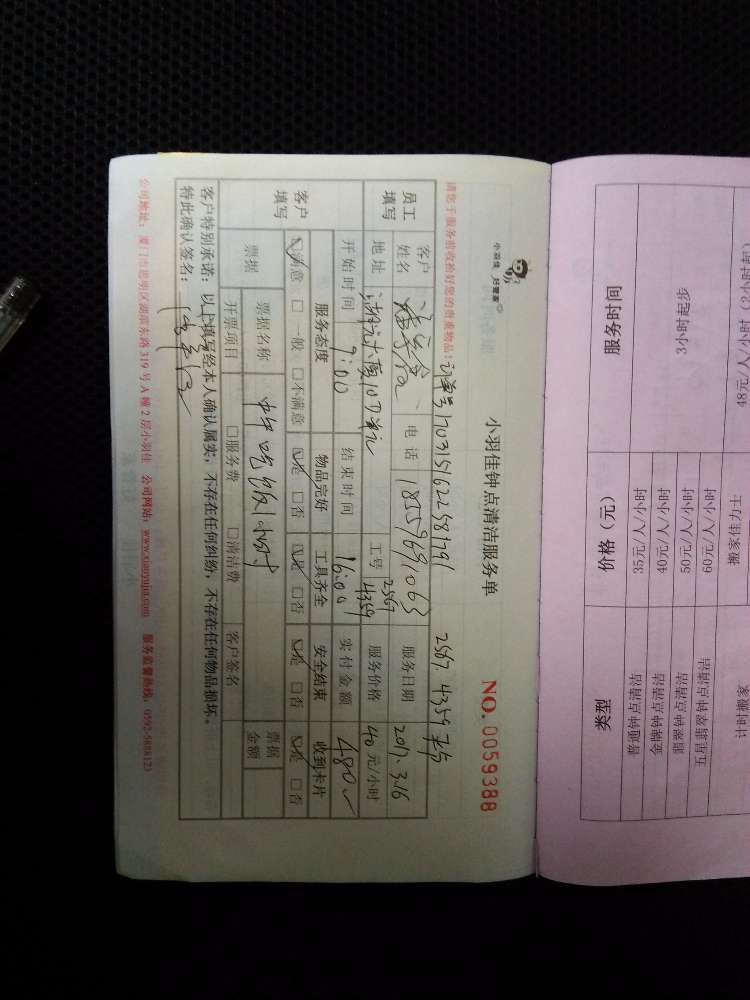 小羽佳 好管家
小羽佳钟点清洁服务单
NO.0059388
请您于服务前收拾好您的贵重物品!
2567. 4359
员工填写
客户姓名
电话 18559691063
服务日期 2017.3.16
地址
10D单元
工号 2567 4359
服务价格 40元/小时
开始时间 9:00
结束时间 16:00
实付金额 480
客户填写
服务态度 物品完好 工具齐全 安全结束 收到卡片
☑满意 □一般 □不满意 ☑是 □否 ☑是 □否 ☑是 □否 ☑是 □否
票据
票据名称
票据金额
开票项目 □服务费 □清洁费 客户签名
客户特别承诺:以上填写经本人确认属实,不存在任何纠纷,不存在任何物品损坏。
特此确认签名:
公司地址:厦门市思明区湖滨东路319号A幢2层小羽佳 公司网站:www.xiaoyujia.com 服务监督热线:0592-5888123
类型 价格(元) 服务时间
普通钟点清洁 35元/人/小时
金牌钟点清洁 40元/人/小时
翡翠钟点清洁 50元/人/小时
五星翡翠钟点清洁 60元/人/小时
3小时起步
计时搬家 搬家佳力士 48元/人/小时(2小时起)